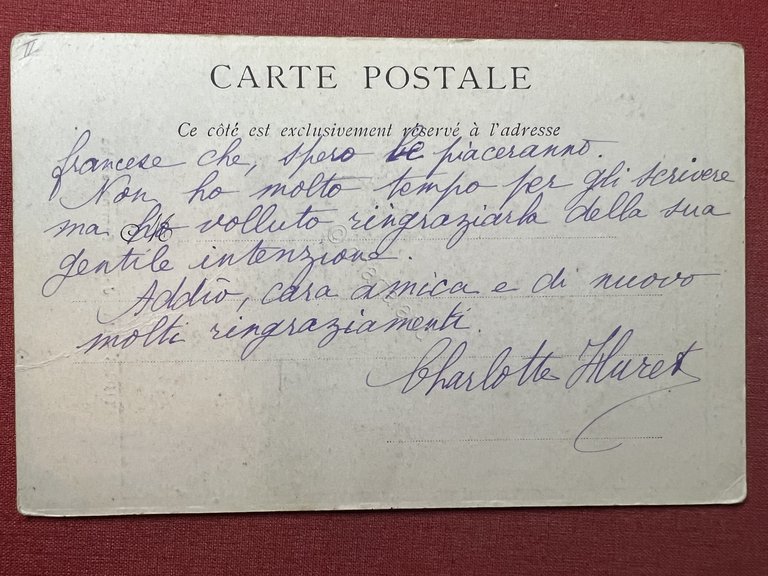 II
CARTE POSTALE
Ce côté est exclusivement réservé à l'adresse
francese che, spero le piaceranno.
Non ho molto tempo per gli scrivere
ma ho volluto ringraziarla della sua
gentile intenzione.
Addio, cara amica e di nuovo
molti ringraziamenti.
Charlotte Huret